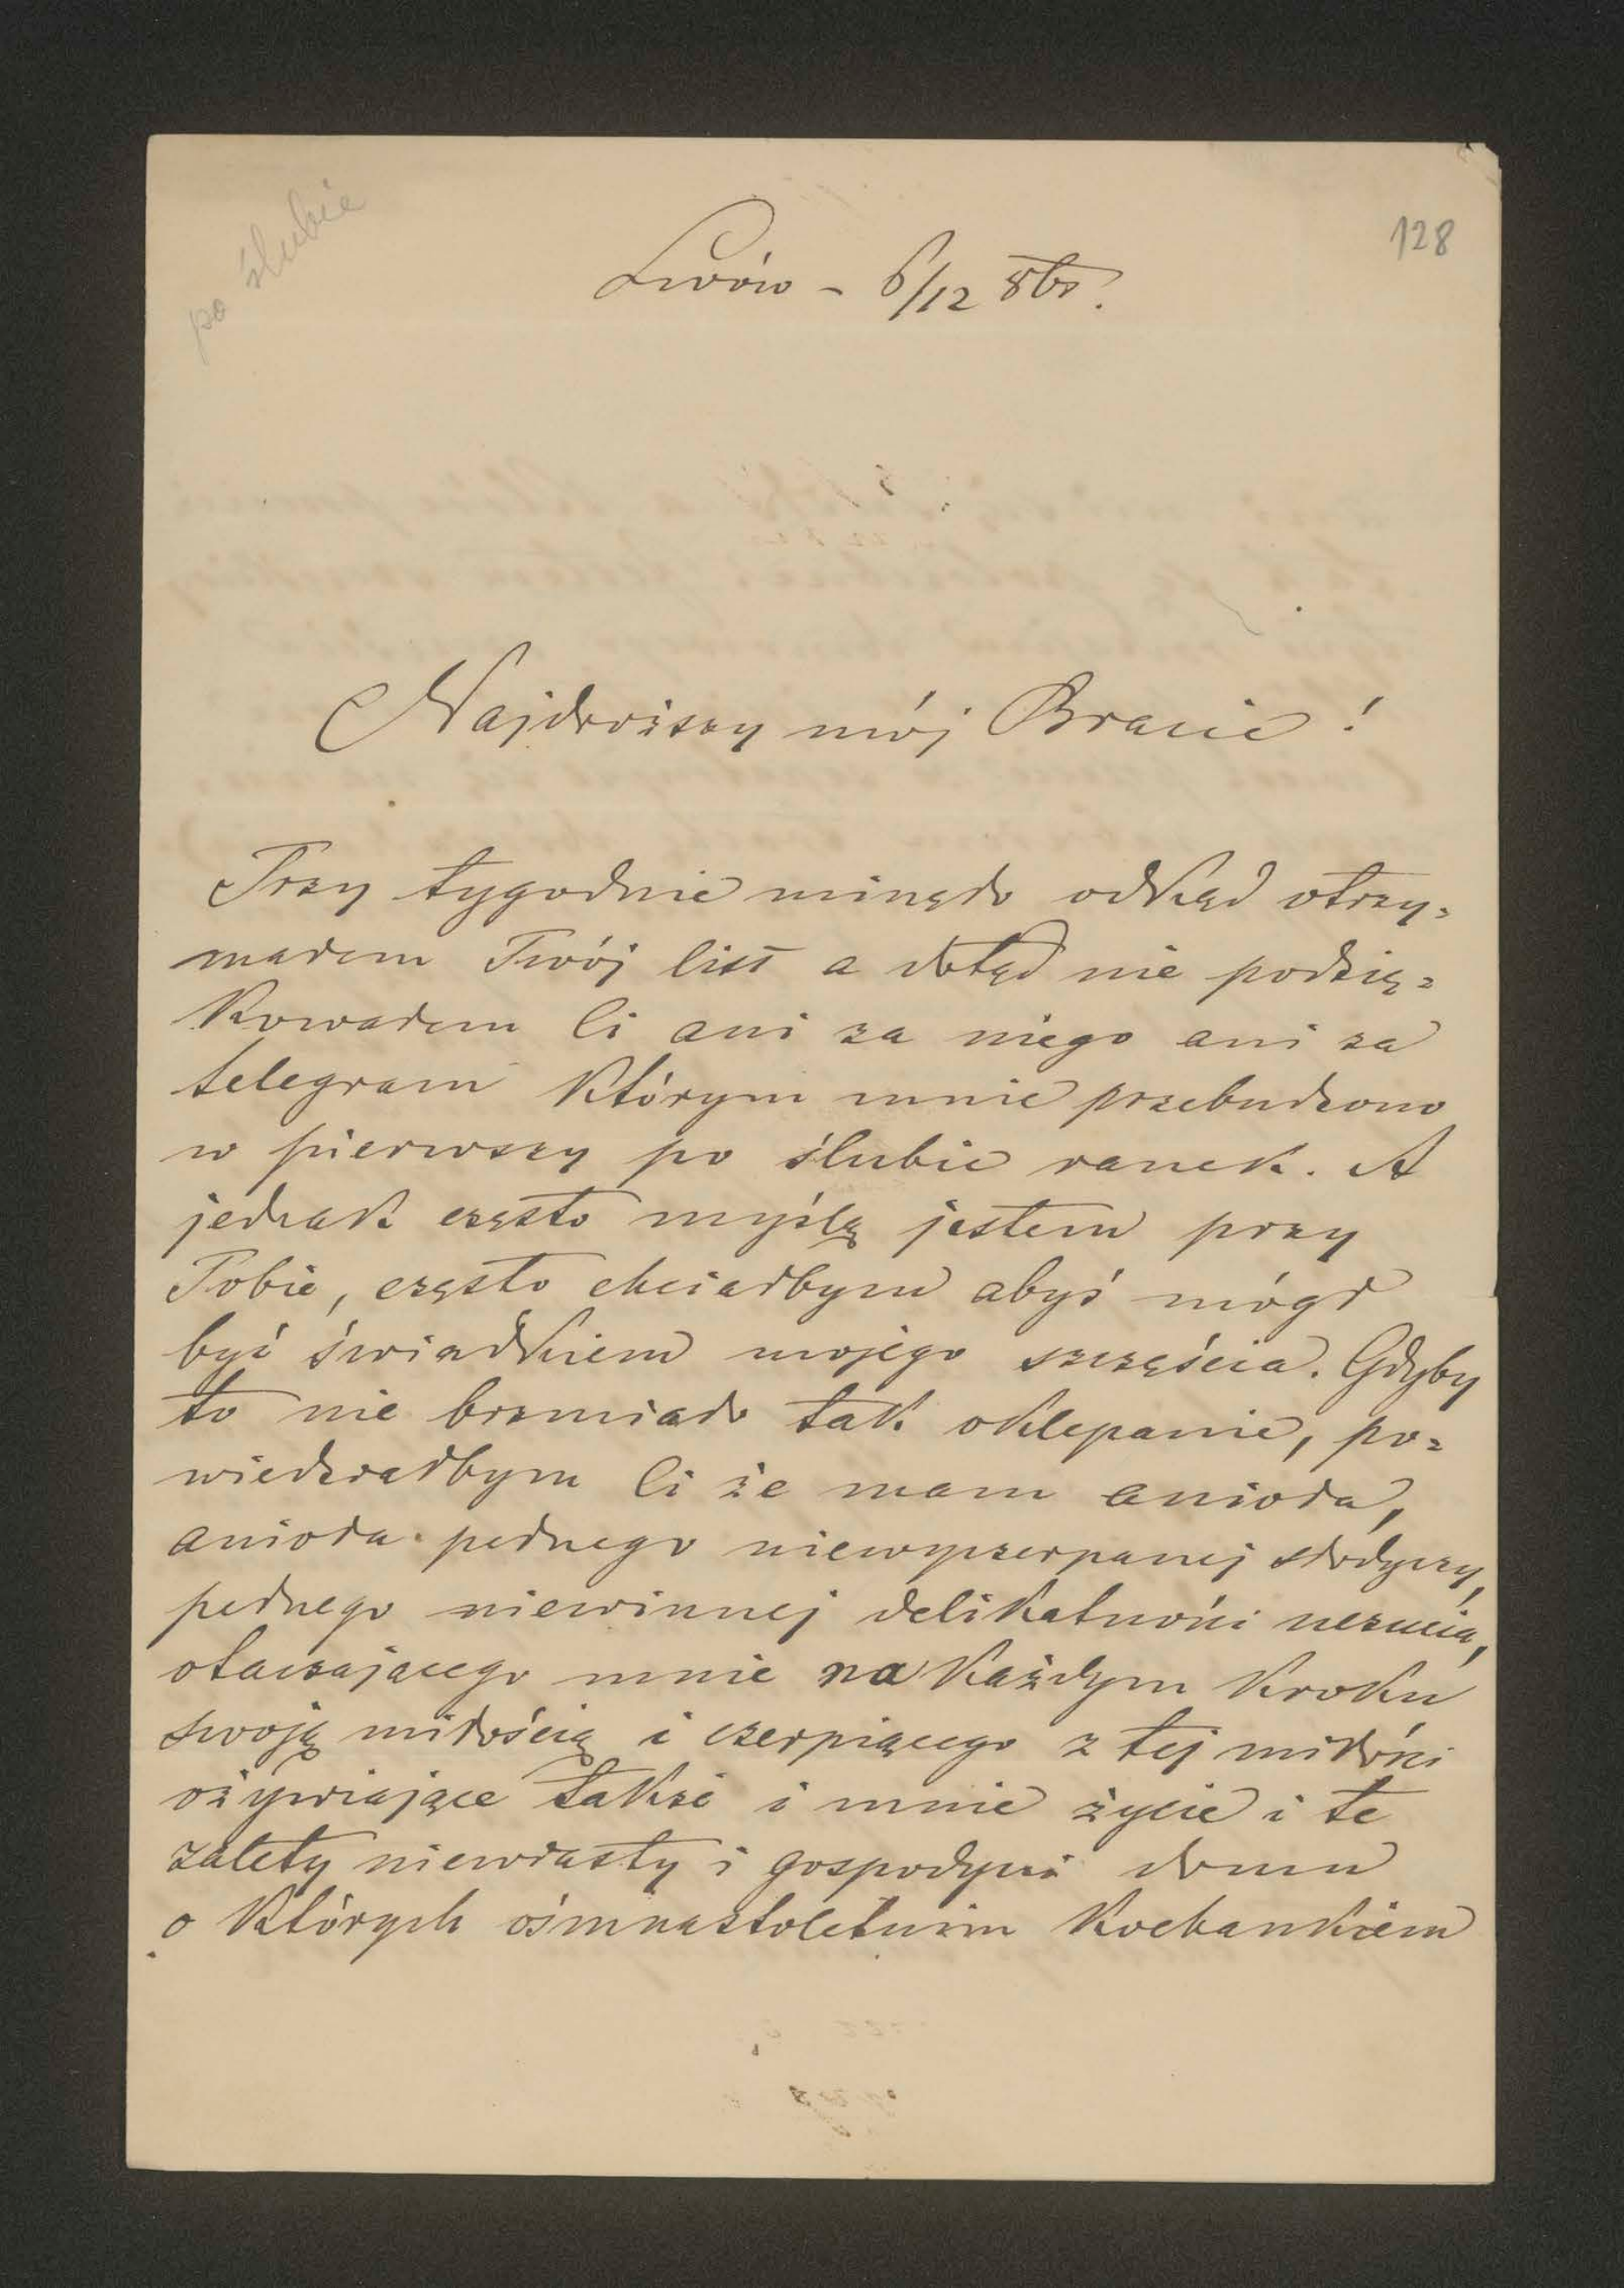 po ślubie
128
Lwów - 6/12 8br.
Najdroższy mój Bracie!
Trzy tygodnie minęło odkąd otrzy=
małem Twój list a dotąd nie podzię=
kowałem Ci ani za niego ani za
telegram którym mnie przebudzono
w pierwszy po ślubie ranek. A
jednak często myślą jestem przy
Tobie, często chciałbym abyś mógł
być świadkiem mojego szczęścia. Gdyby
to nie brzmiało tak oklepanie, po=
wiedziałbym Ci że mam anioła,
anioła pełnego niewyczerpanej słodyczy,
pełnego niewinnej delikatności uczucia,
otaczającego mnie na każdym kroku
swoją miłością i czerpiącego z tej miłości
ożywiające także i mnie życie i te
zalety niewiasty i gospodyni domu
o których ośmnastoletnim kochankiem